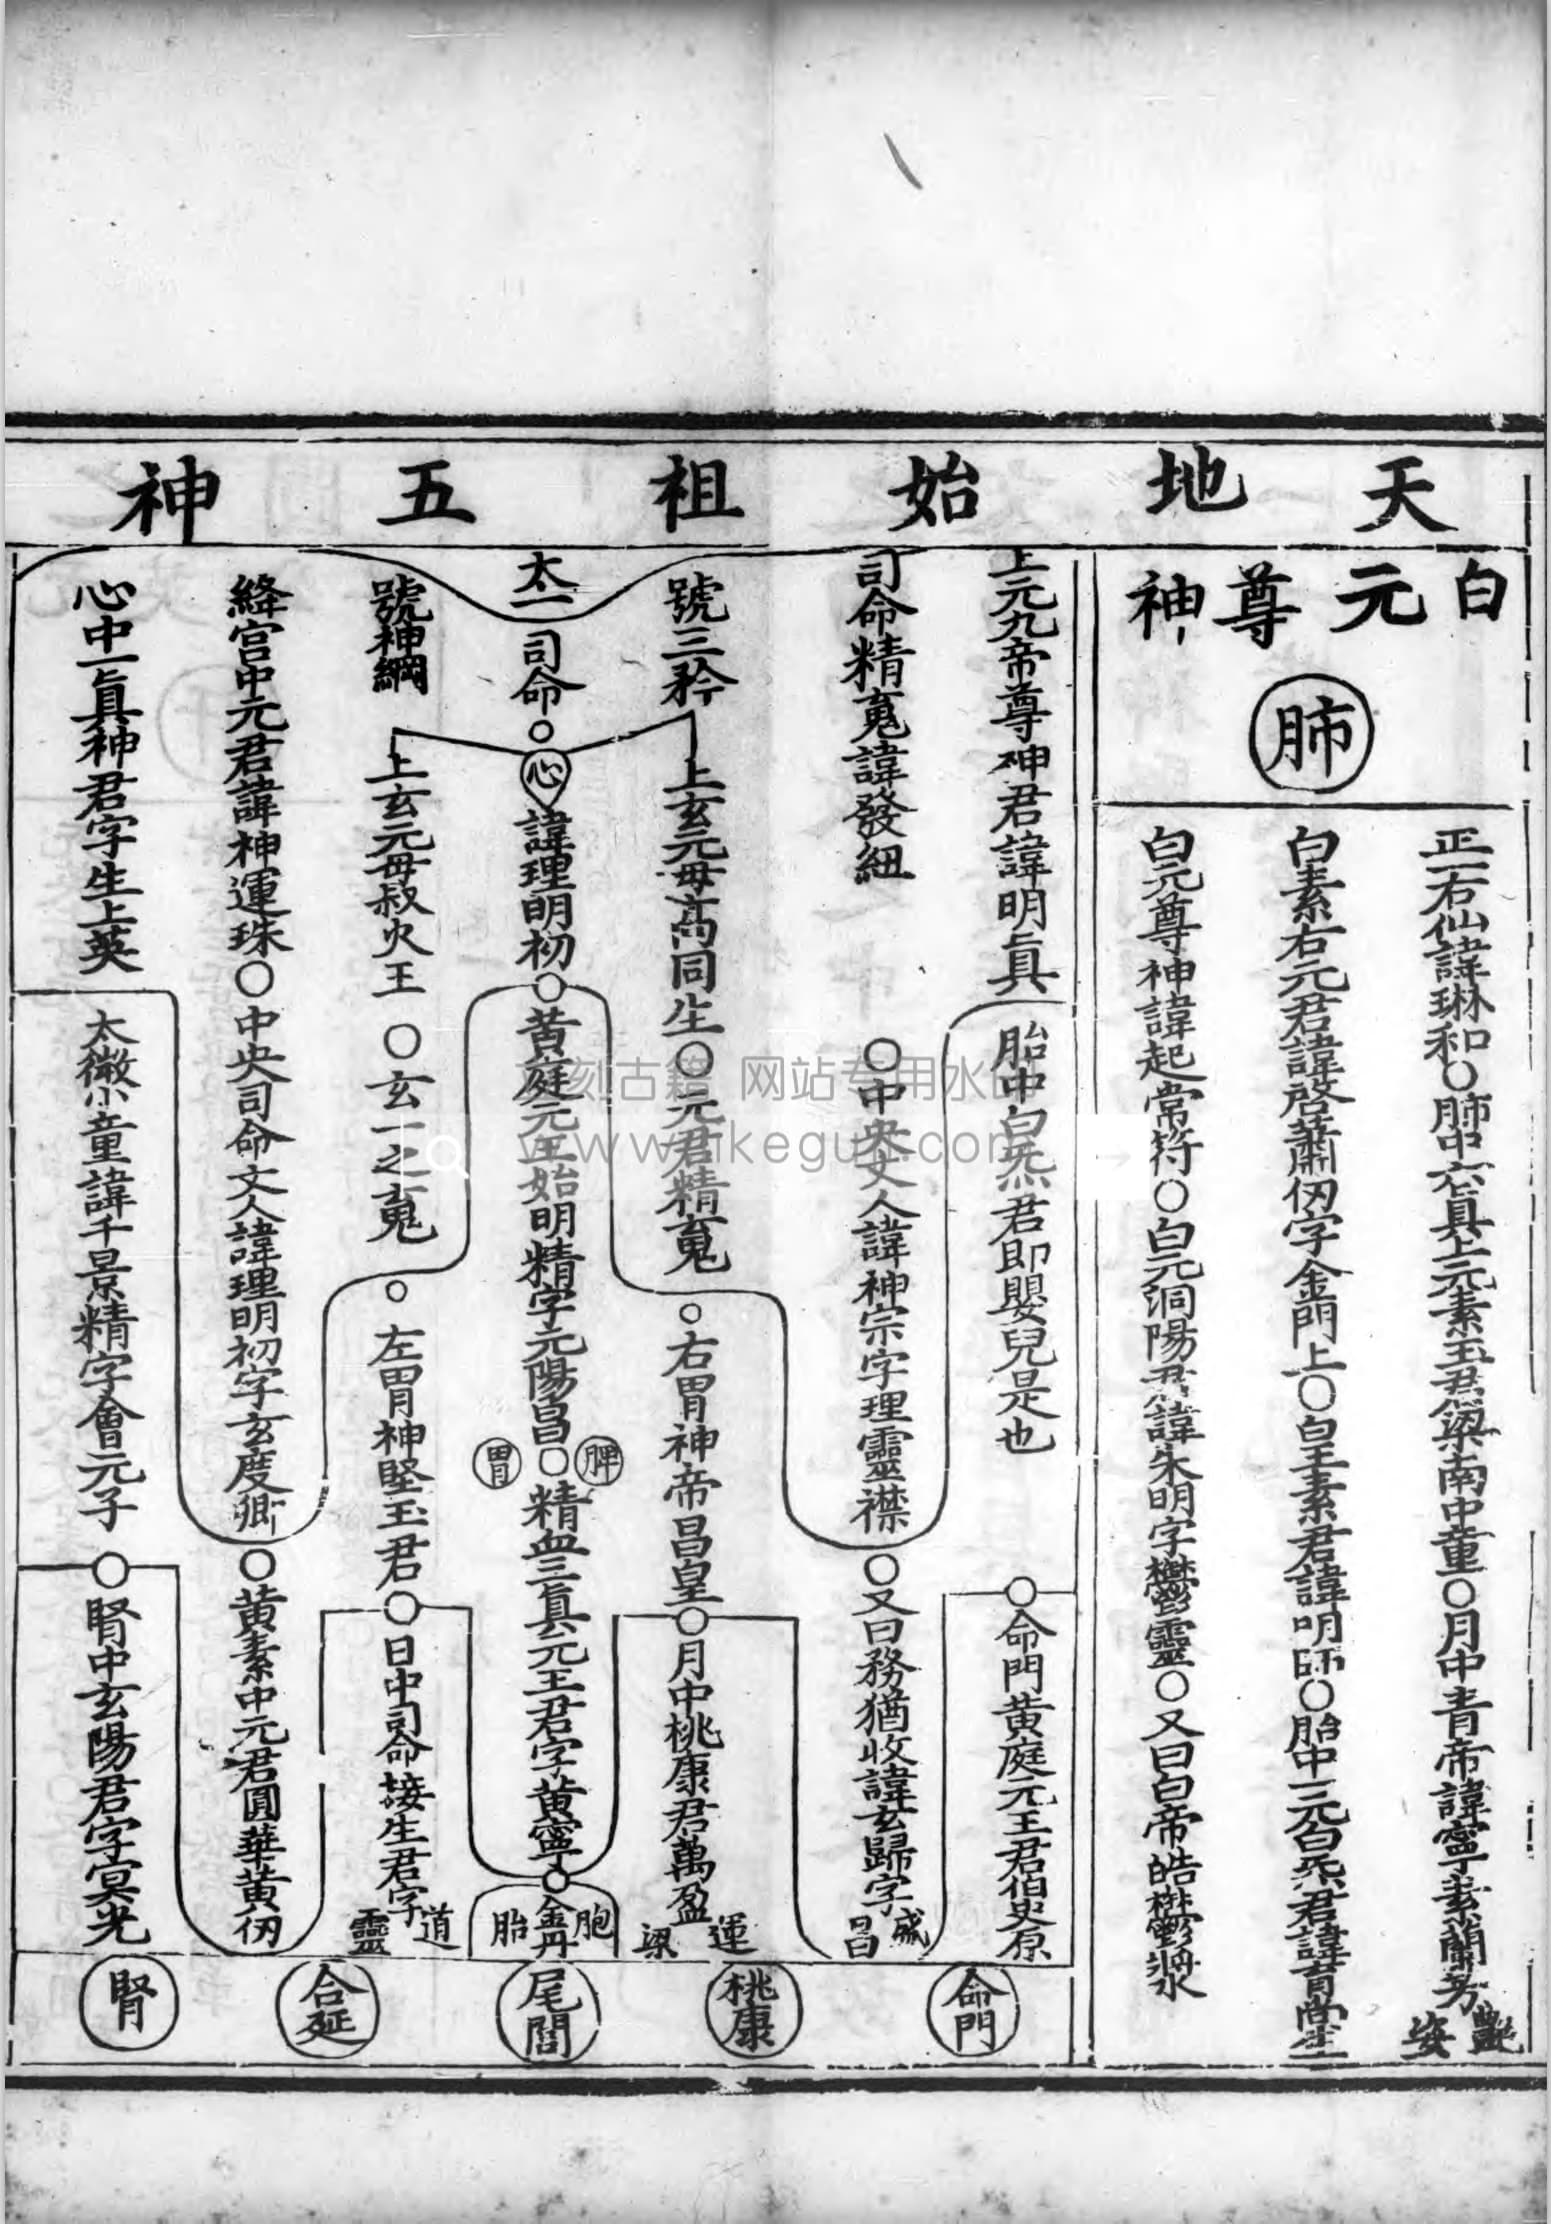 天地始祖五神
白元尊神
肺
正一右仙諱琳和〇肺中六眞上元素玉君梁南中童〇月中青帝諱寧素蘭芳豔姿
白素右元君諱啓蕭仞字金門上〇白王素君諱明師〇胎中三元白炁君諱育尚生
白元尊神諱起常符〇白元洞陽君諱朱明字鬱靈〇又曰白帝皓鬱將水
上元九帝尊神君諱明眞
胎中白炁君即嬰兒是也
〇命門黃庭元王君伯史原
命門
司命精䰟諱發紐
〇中央丈人諱神宗字理靈襟
〇又曰務猶收諱玄歸字盛昌
號三矜
上玄元母高同生〇元君精䰟
〇右胃神帝昌皇〇月中桃康君萬盈運梁
桃康
太一司命〇
心
諱理明初
〇黃庭元王始明精字元陽昌〇精血三眞元王君字黃寧
脾
胃
〇金丹
胞
胎
尾閭
號神綱
上玄元母叔火王〇玄一之䰟
〇左胃神堅玉君〇日中司命接生君字道靈
合延
絳宮中元君諱神運珠〇中央司命丈人諱理明初字玄度卿
〇黃素中元君圓華黃仞
心中一眞神君字生上英
太微小童諱千景精字會元子
〇腎中玄陽君字冥光
腎
刻古籍 网站专用水印